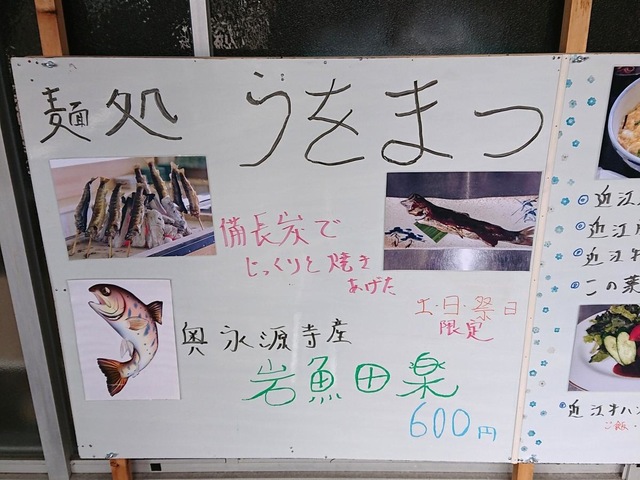 麺処 うをまつ
備長炭で
じっくりと焼き
あげた
土・日・祭日
限定
奥永源寺産
岩魚田楽
600円
近江
近江
近江牛
この薬
近江牛ハ
ご飯・